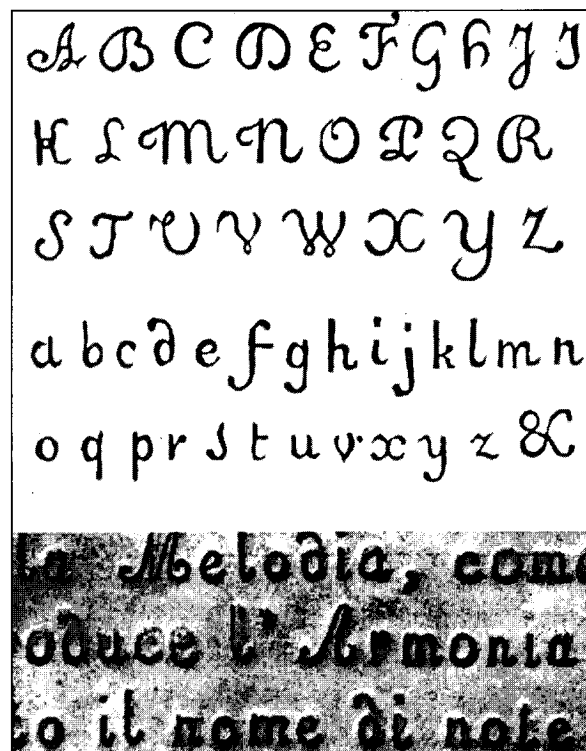 A B C D E F G H J I
K L M N O P Q R
S T U V W X Y Z
a b c d e f g h i j k l m n
o q p r s t u v x y z &
la Melodia, como
oduce l'Armonia
to il nome di note